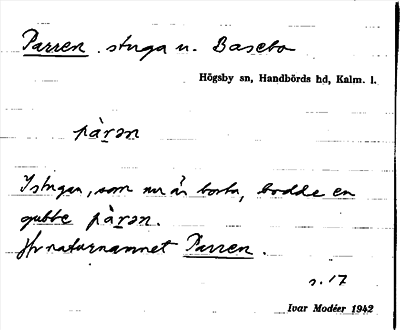 Parren. stuga u. Basebo
Högsby sn, Handbörds hd, Kalm. l.
pàrən
I stugan, som nu är borta, bodde en
gubbe pàrən.
Jfr naturnamnet Parren.
s. 17
Ivar Modéer 1942